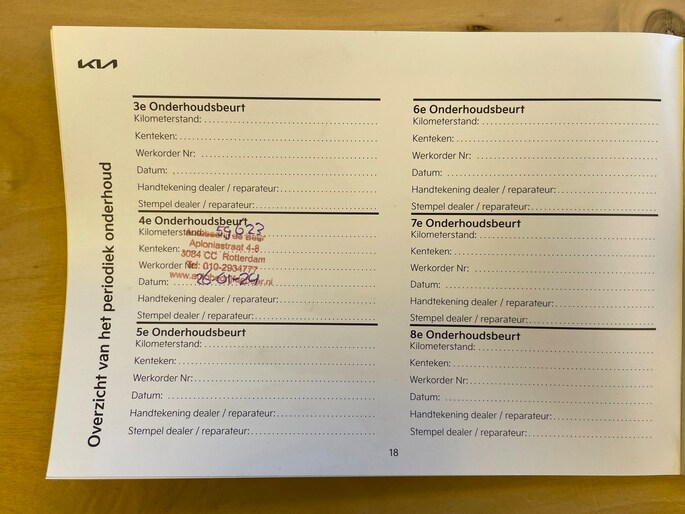 KIA
Overzicht van het periodiek onderhoud
3e Onderhoudsbeurt
Kilometerstand:
Kenteken:
Werkorder Nr:
Datum:
Handtekening dealer / reparateur:
Stempel dealer / reparateur:
4e Onderhoudsbeurt
Kilometerstand: 59623
Kenteken:
Aploniastraat 4-8
3084 CC Rotterdam
Werkorder Nr:
Tel: 010-2934777
Datum: 26-01-24
Handtekening dealer / reparateur:
Stempel dealer / reparateur:
5e Onderhoudsbeurt
Kilometerstand:
Kenteken:
Werkorder Nr:
Datum:
Handtekening dealer / reparateur:
Stempel dealer / reparateur:
6e Onderhoudsbeurt
Kilometerstand:
Kenteken:
Werkorder Nr:
Datum:
Handtekening dealer / reparateur:
Stempel dealer / reparateur:
7e Onderhoudsbeurt
Kilometerstand:
Kenteken:
Werkorder Nr:
Datum:
Handtekening dealer / reparateur:
Stempel dealer / reparateur:
8e Onderhoudsbeurt
Kilometerstand:
Kenteken:
Werkorder Nr:
Datum:
Handtekening dealer / reparateur:
Stempel dealer / reparateur:
18